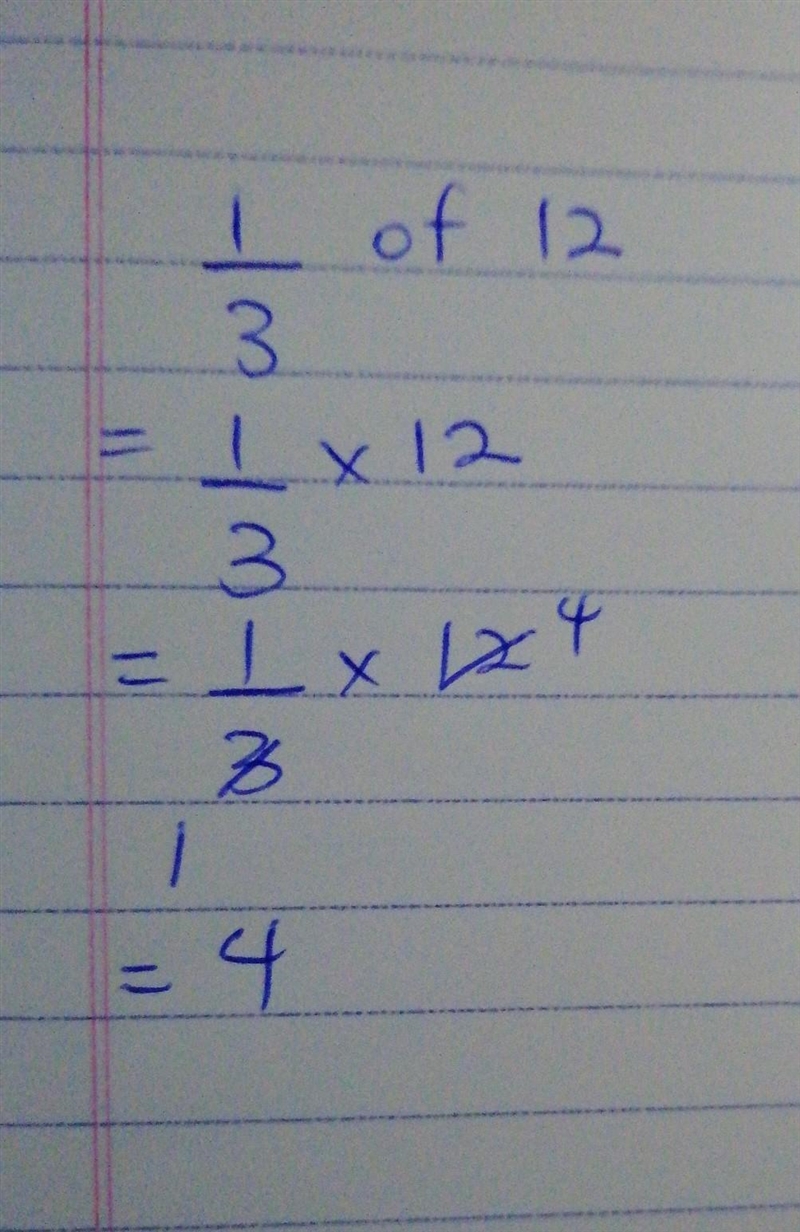 1/3 of 12
= 1/3 × 12
= 1/3 × 12 4
1
= 4